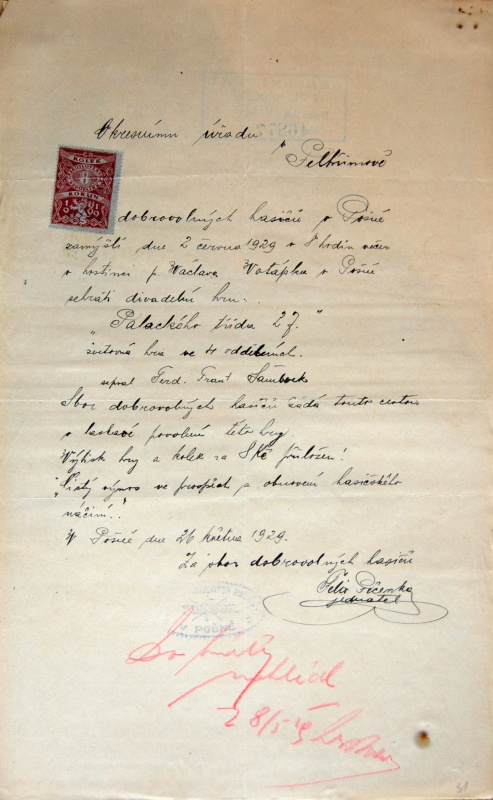 Okresnímu úřadu v Pelhřimově
KOLEK
KORUN
dobrovolných hasičů v Pošné
zamýšlí dne 2 června 1929 v 8 hodin večer
v hostinci p. Václava Votápka v Pošné
sehráti divadelní hru:
"Palackého třída 27."
žertovná hra ve 4 odděleních.
sepsal Ferd. Frant Šamberk
Sbor dobrovolných hasičů žádá touto cestou
o laskavé povolení této hry
Výtisk hry a kolek za 8 Kč přiložen!
"Čistý výnos ve prospěch a obnovení hasičského
náčiní".
V Pošné dne 26 května 1929.
Za sbor dobrovolných hasičů
jednatel
V POŠNÉ
28/5
31